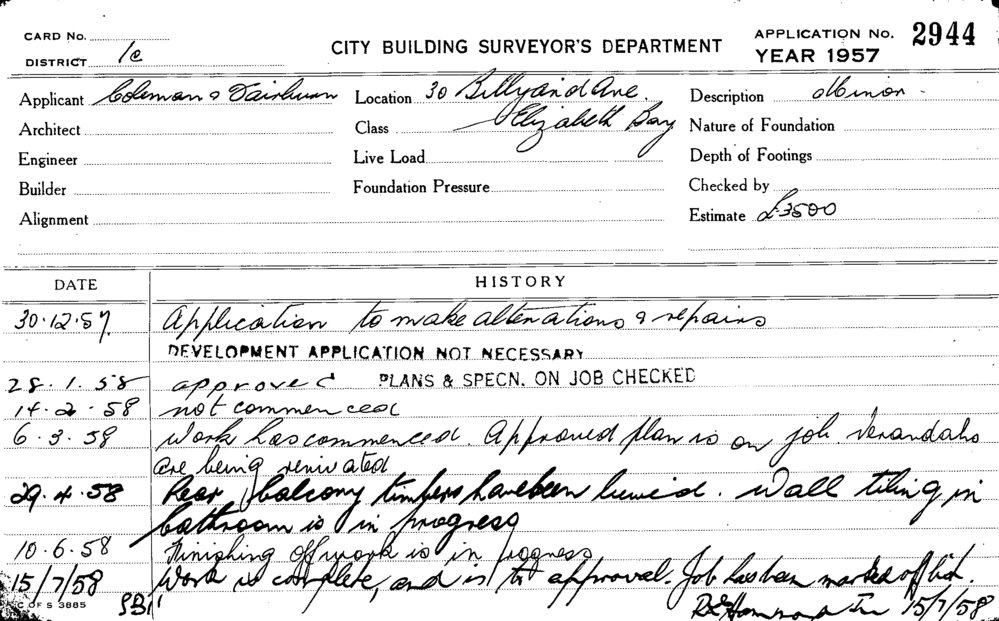 CARD No.
DISTRICT 1c
CITY BUILDING SURVEYOR'S DEPARTMENT
APPLICATION No. 2944
YEAR 1957
Applicant Coleman & Fairburn
Location 30 Billyard Ave.
Elizabeth Bay
Description Minor
Architect
Class
Nature of Foundation
Engineer
Live Load
Depth of Footings
Builder
Foundation Pressure
Checked by
Alignment
Estimate £3500
DATE HISTORY
30.12.57. Application to make alterations & repairs
DEVELOPMENT APPLICATION NOT NECESSARY
28.1.58 approved PLANS & SPECN. ON JOB CHECKED
14.2.58 not commenced
6.3.58 Work has commenced. Approved plan is on job Verandahs
are being
29.4.58 Rear balcony timbers have been . Wall tiling in
bathroom is in progress
10.6.58 Finishing off work is in progress
15/7/58 Work is complete, and is to approval. Job has been marked off
C OF S 3885
15/7/58